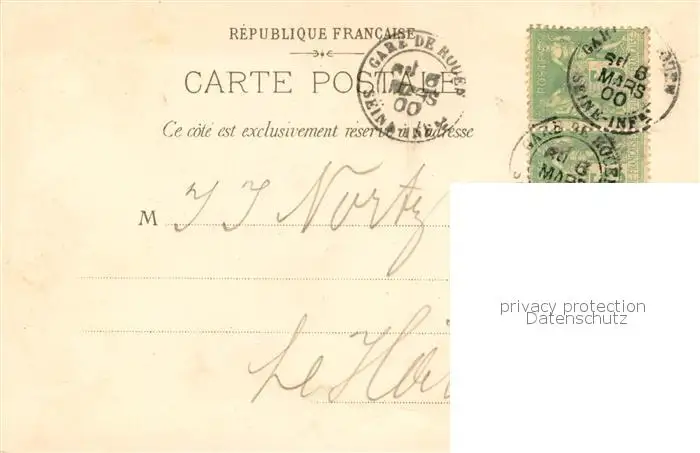 RÉPUBLIQUE FRANÇAISE
CARTE POSTALE
Ce côté est exclusivement réservé à l'adresse
GARE DE ROUEN
8
MARS
00
SEINE-INF
POSTES
GARE ROUEN
8
MARS
00
SEINE-INF
GARE DE ROUEN
8
MARS
M J J Nortz
Le
privacy protection
Datenschutz